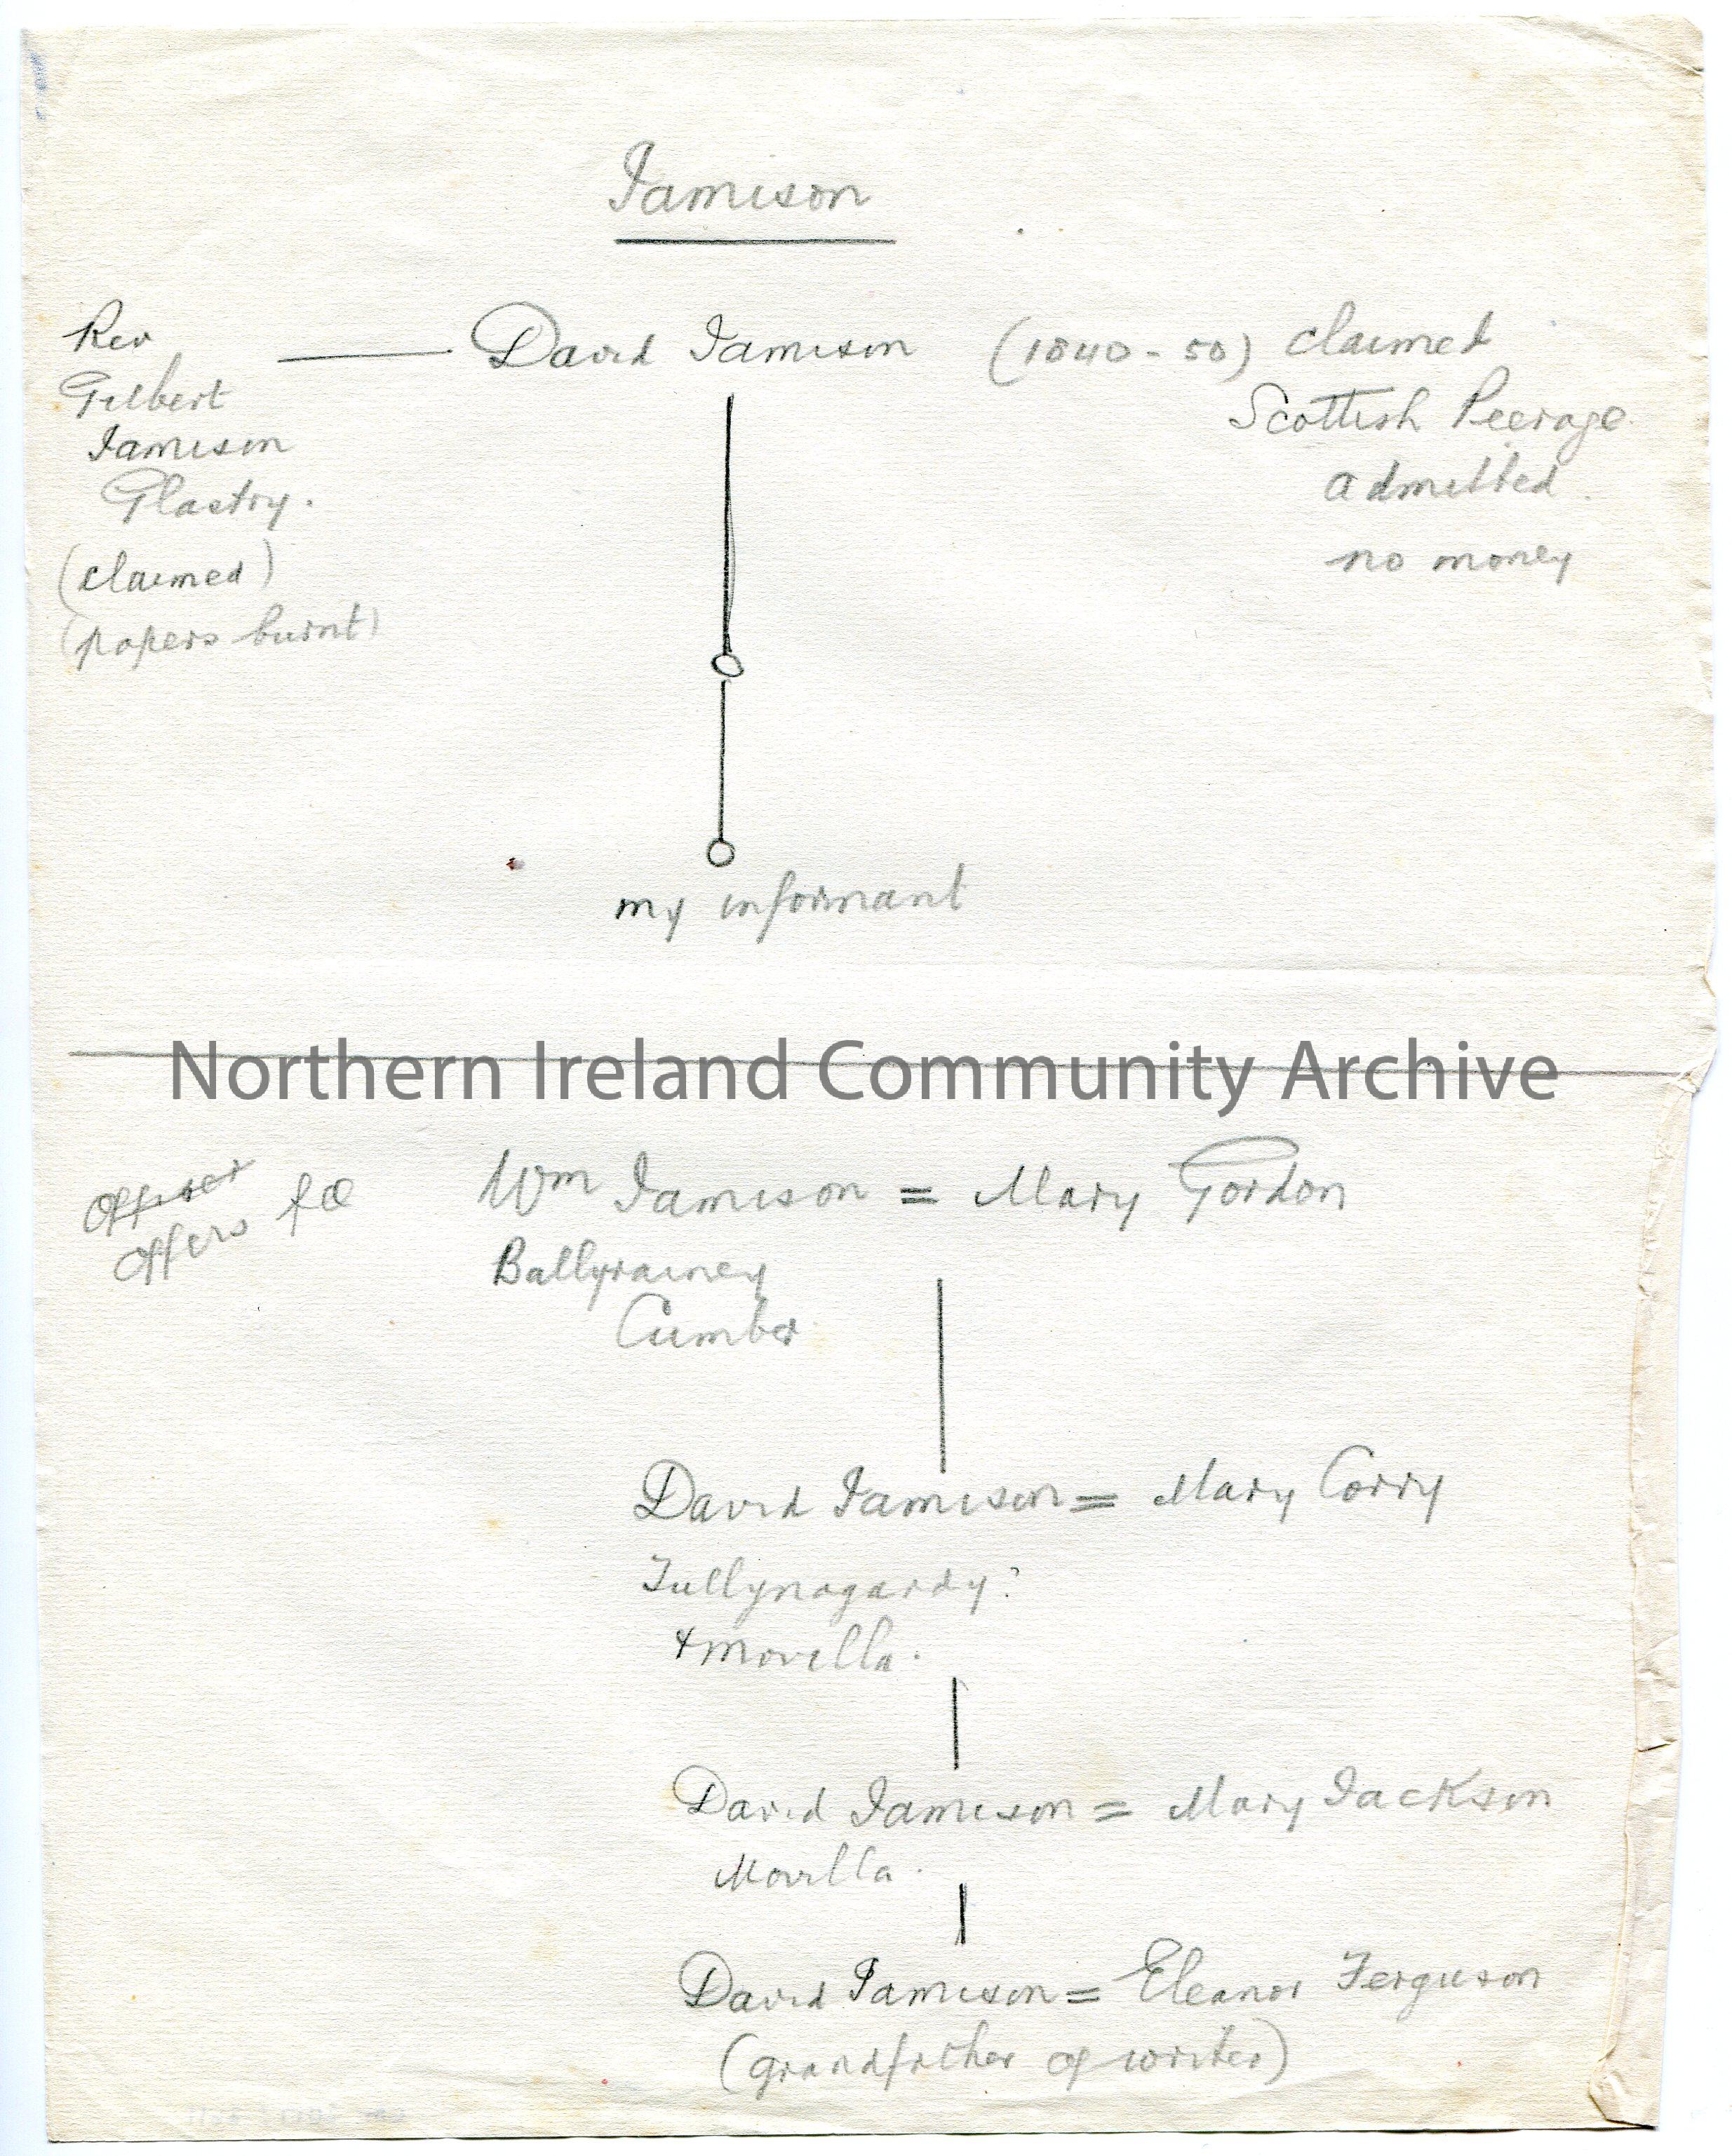 Jamison
Rev
Gilbert
Jamison
Glastry.
(claimed)
(papers burnt)
David Jamison (1840-50) claimed
Scottish Peerage
admitted.
no money
my informant
Northern Ireland Community Archive
Offers
Wm Jamison = Mary Gordon
Ballyrainey
Cumber
David Jamison = Mary Corry
Tullynagardy?
& Movilla.
David Jamison = Mary Jackson
Movilla.
David Jamison = Eleanor Ferguson
(grandfather of writer)